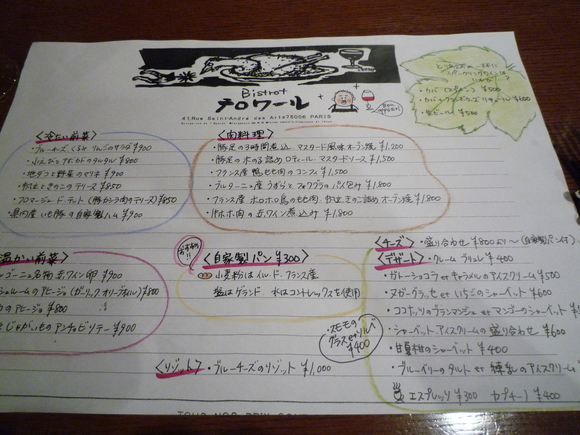 Bistrot
テロワール
41,Rue Saint-André des Arts75006 PARIS
<冷たい前菜>
・ブルーチーズ くるみ りんごのサラダ ¥900
・地ダコと野菜のマリネ ¥900
・砂肝ときのこのテリーヌ ¥850
・フロマージュ・ド・テット (豚がしら肉のテリーヌ) ¥850
・県内産いも豚の自家製ハム ¥900
<肉料理>
・豚足の3時間煮込 マスタード風味オーブン焼 ¥1,200
・豚足の木のる詰めロティール マスタードソース ¥1,500
・フランス産 鴨もも肉のコンフィ ¥1,500
・ブルターニュ産 うずらと フォアグラのパイ包み ¥1,800
・フランス産 ホロホロ鳥のもも肉、砂肝、きのこ詰め オーブン焼 ¥1,800
・牛ホホ肉の赤ワイン煮込み ¥1,800
温かい前菜>
ゴーニュ名物 赤ワイン卵 ¥900
シュルームのアヒージョ (ガーリックオリーブオイル) ¥800
のアヒージョ ¥800
とじゃがいものアンチョビソテー ¥900
おすすめ!!
<自家製パン ¥300>
小麦粉はイル・ド・フランス産
塩はゲランド 水はコントレックスを使用
<リゾット> ・ブルーチーズのリゾット ¥1,000
・スモモの
グラスorソルベ
¥400
<チーズ> ・盛り合わせ ¥800より〜(自家製パン付)
<デザート> ・クレームブリュレ ¥400
・ガトーショコラ et キャラメルのアイスクリーム ¥500
・ヌガーグラッセ et いちごのシャーベット ¥600
・ココナッツのブランマンジェ et マンゴーのシャーベット
・シャーベット アイスクリームの盛り合わせ ¥600
・甘夏柑のシャーベット ¥400
・ブルーベリーのタルト et 練乳のアイスクリーム
エスプレッソ ¥300 カプチーノ ¥400